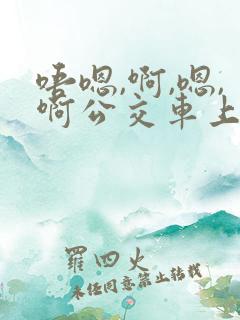 唔嗯,啊,嗯,
啊公交車上
羅四火
未经同意禁止转载